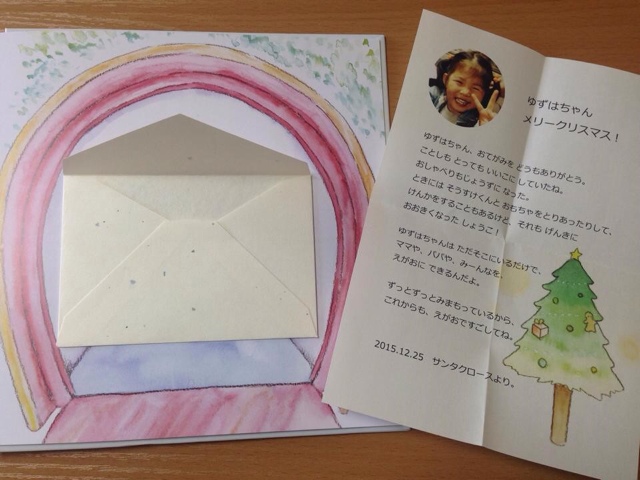 ゆずはちゃん
メリークリスマス！
ゆずはちゃん、おてがみを どうもありがとう。
ことしも とっても いいこに していたね。
おしゃべりもじょうずに なった。
ときには そうすけくんと おもちゃをとりあったりして、
けんかをすることもあるけど、それも げんきに
おおきくなった しょうこ！
ゆずはちゃんは ただそこにいるだけで、
ママや、パパや、みーんなを、
えがおに できるんだよ。
ずっとずっとみまもっているから、
これからも、えがおですごしてね。
2015.12.25 サンタクロースより。